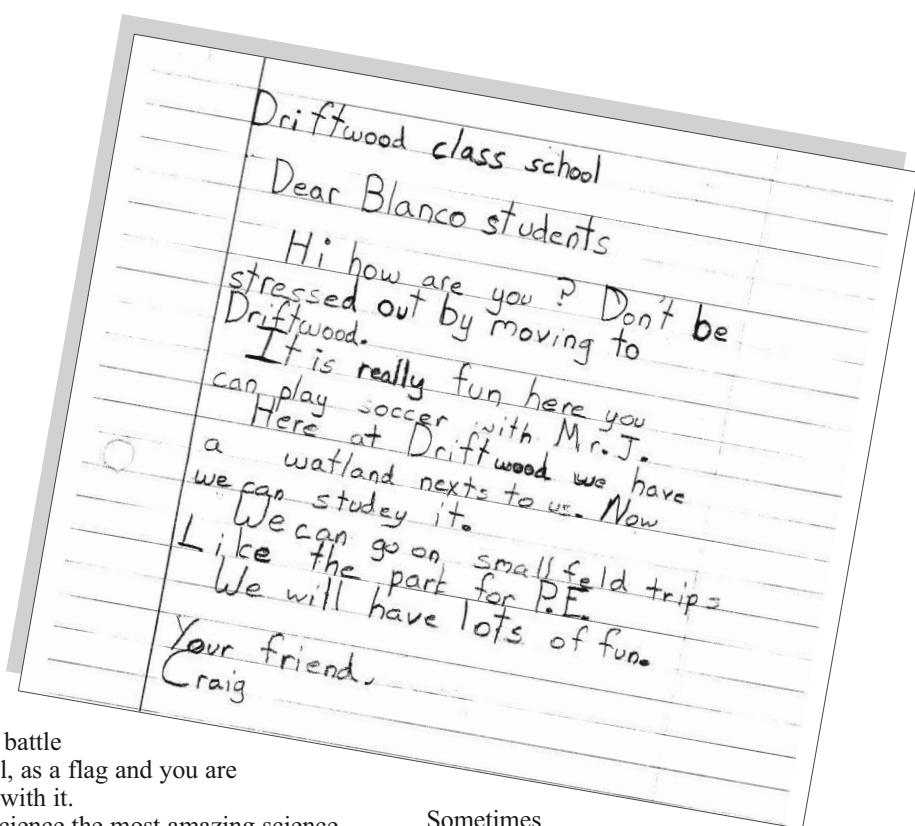 Driftwood class school
Dear Blanco students
Hi how are you? Don't be
stressed out by moving to
Driftwood.
It is really fun here you
can play soccer with Mr. J.
Here at Driftwood we have
a watland nexts to us. Now
we can studey it.
We can go on small feld trips
Like the part for P.E.
We will have lots of fun.
Your friend,
Craig
battle
l, as a flag and you are
with it.
cience the most amazing science
Sometimes